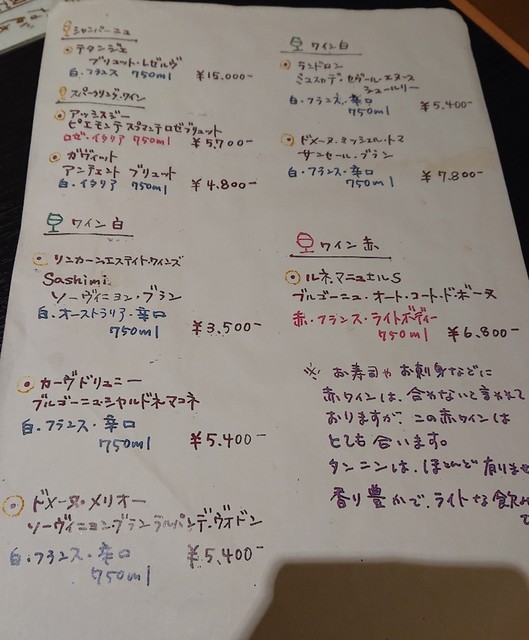 シャンパーニュ
テタンジェ
ブリュット・レゼルヴ
白・フランス 750ml ¥15.000-
スパークリング・ワイン
アッシズジー
ピエモンテ スプマンテ ロゼ ブリュット
ロゼ・イタリア 750ml ¥5,700-
ガヴィット
アンテェント ブリュット
白・イタリア 750ml ¥4.800-
ワイン 白
リンカーンエステイト・ワインズ
Sashimi
ソーヴィニョン・ブラン
白・オーストラリア・辛口
750ml ¥3,500-
カーヴドリュニー
ブルゴーニュ・シャルドネマコネ
白・フランス・辛口
750ml ¥5,400-
ドメーヌ・メリオー
ソーヴィニョン・ブラン ラルパン・デ・ヴォドン
白・フランス・辛口 ¥5,400-
750ml
ワイン 白
ランドロン
ミュスカデ・セヴール・エヌース
シュールリー
白・フランス・辛口
750ml ¥5.400-
ドメーヌ・ミッシェル・トマ
サンセール・ブラン
白・フランス・辛口
750ml ¥7.800-
ワイン 赤
ルネ・マニュエル S
ブルゴーニュ・オート・コート・ド・ボーヌ
赤・フランス・ライトボディー
750ml ¥6,800-
※ お寿司や お刺身などに
赤ワインは、合わないと言われて
おりますが、この赤ワインは
とても 合います。
タンニンは、ほとんど 有りませ
香り豊かで、ライトな飲み
で